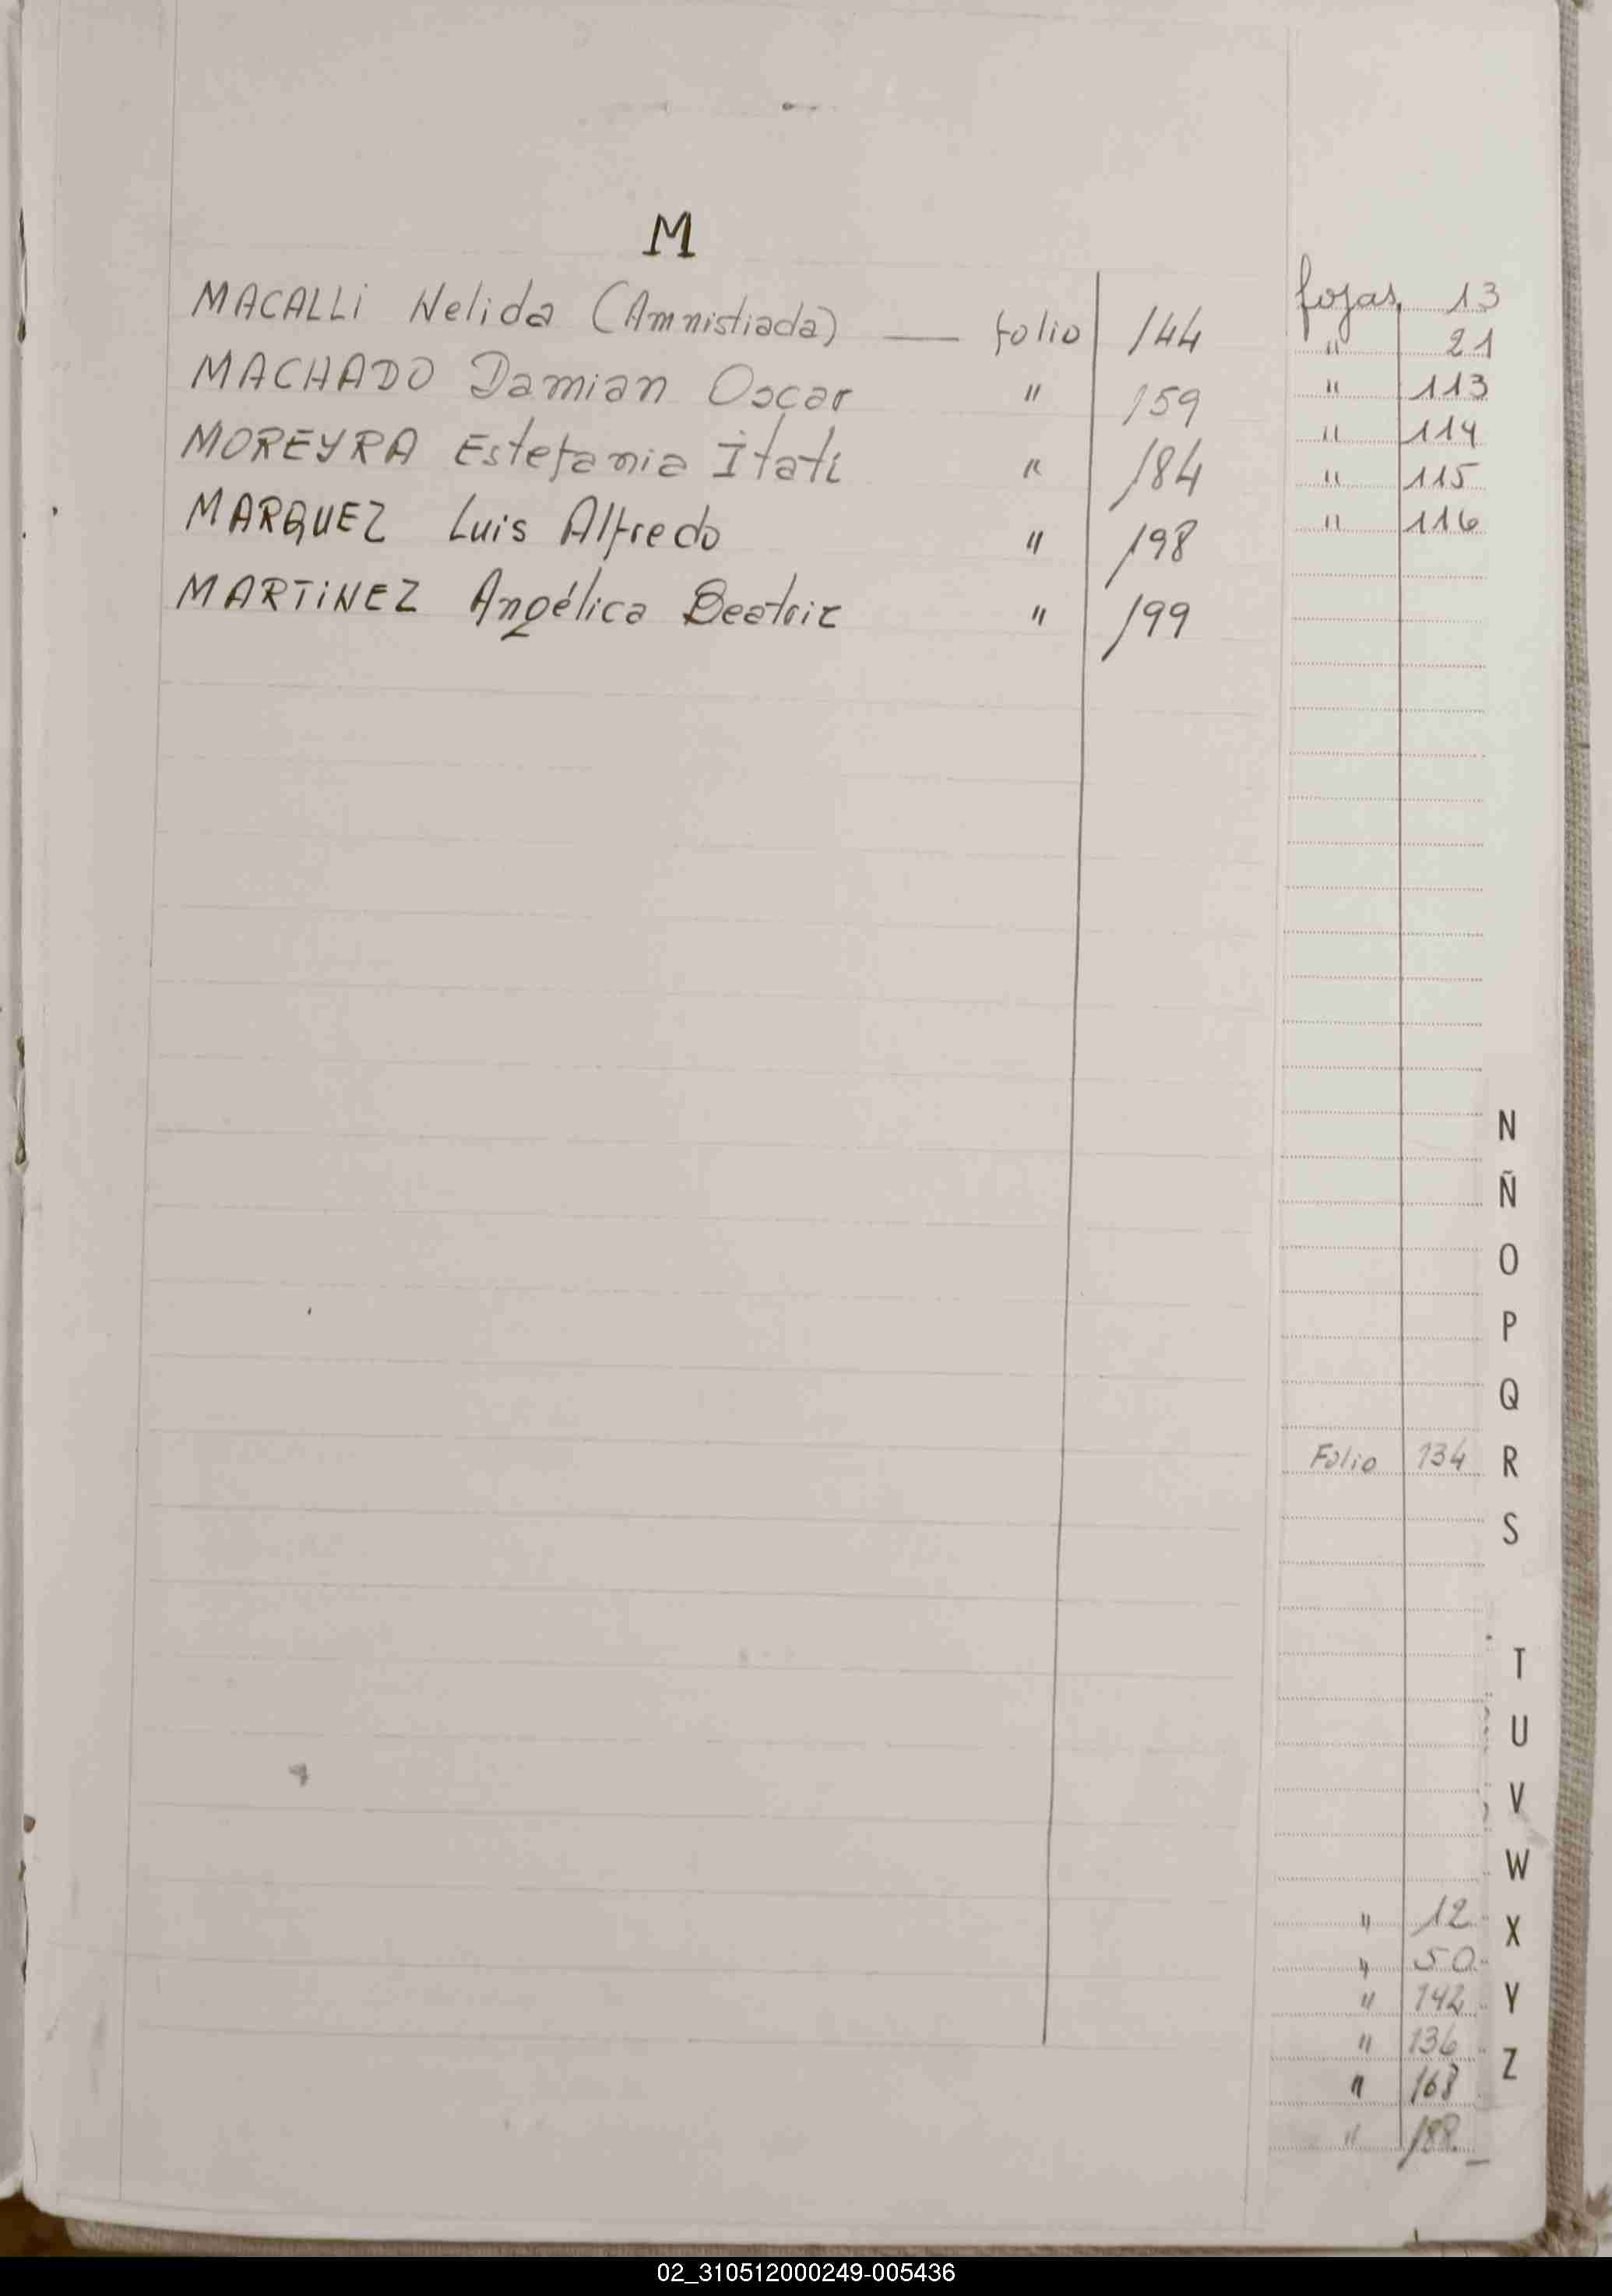 M
MACALLi Nelida (Amnistiada) — folio 144
MACHADO Damian Oscar " 159
MOREYRA Estefania Itati " 184
MARQUEZ Luis Alfredo " 198
MARTiNEZ Angélica Beatriz " 199
fojas 13
" 21
" 113
" 114
" 115
" 116
N
Ñ
O
P
Q
Folio 134 R
S
T
U
V
W
" 12 X
" 50
" 142 Y
" 136 Z
" 168
" 188
02_310512000249-005436